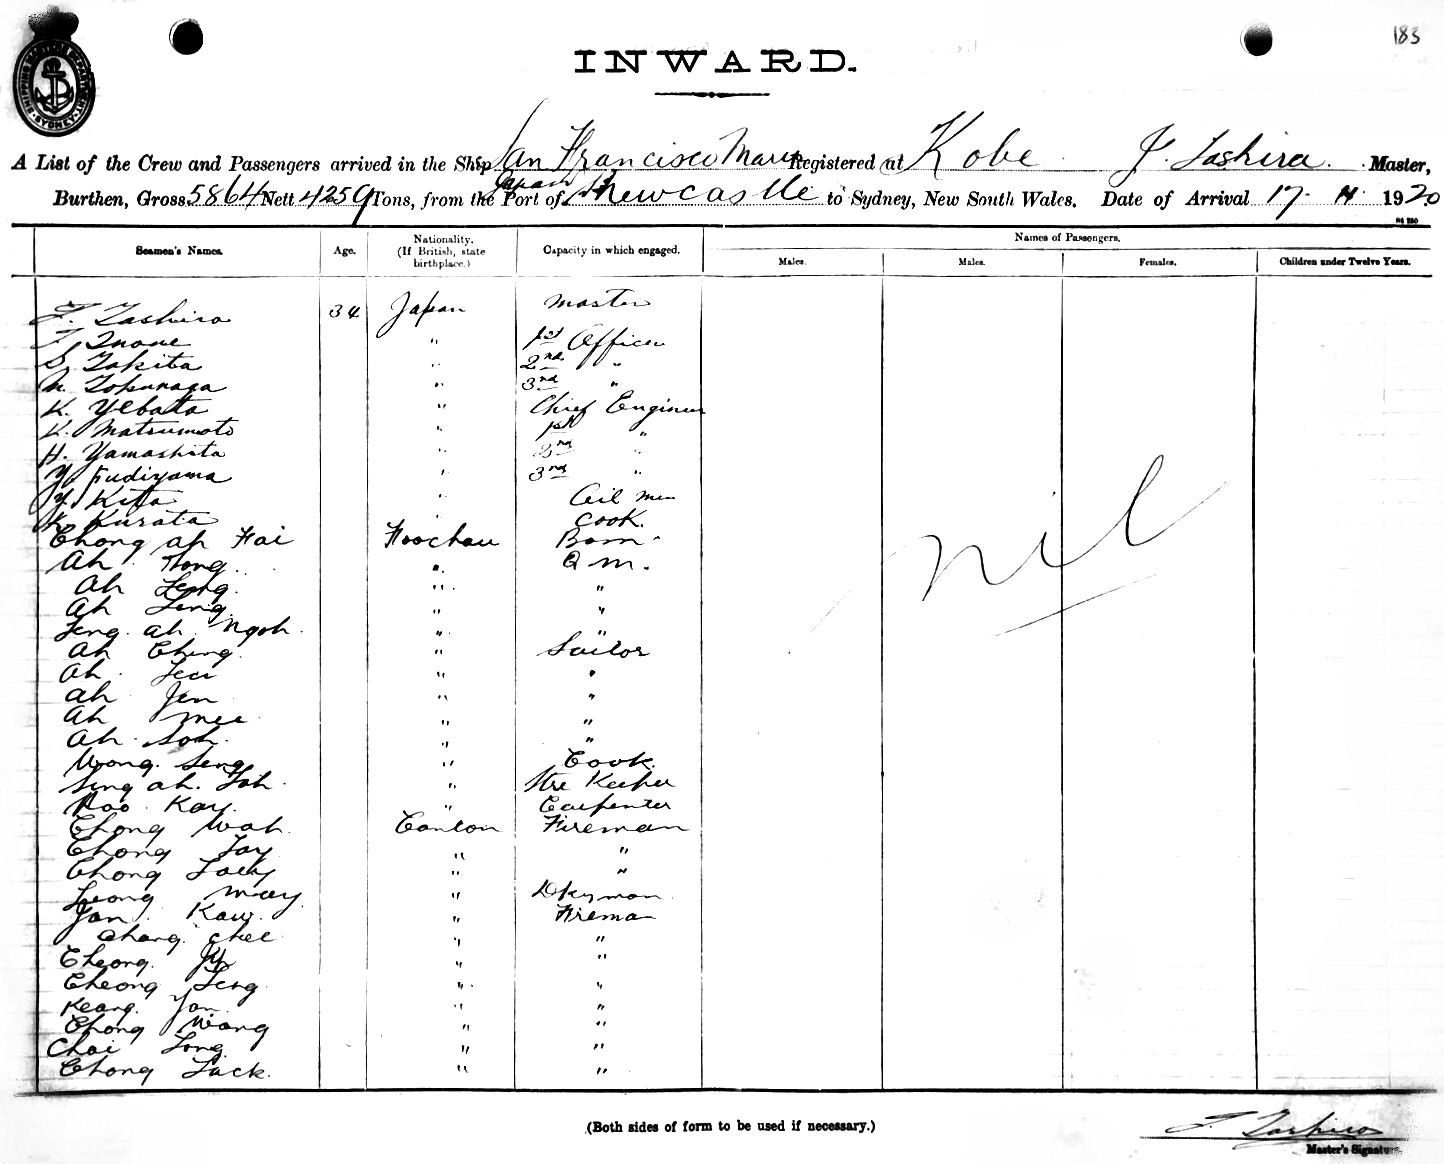 183
SHIPPING MASTER DEPARTMENT SYDNEY
INWARD.
A List of the Crew and Passengers arrived in the Ship San Francisco Maru Registered at Kobe J. Tashiro. Master,
Japan &
Burthen, Gross 5864 Nett 4259 Tons, from the Port of Newcastle to Sydney, New South Wales. Date of Arrival 17. 1920
Seamen's Names. Age. Nationality. (If British, state birthplace.) Capacity in which engaged. Names of Passengers.
Males. Males. Females. Children under Twelve Years.
T. Tashiro 34 Japan Master
T Inoue " 1st Officer
S. Takita " 2nd "
N. Tokunaga " 3rd "
K. Yebata " Chief Engineer
K. Matsumoto " 1st "
H. Yamashita " 2nd "
Y. Fudiyama " 3rd "
Y. Kita " Oil Man
K. Kurata " Cook.
Chong ah Hai Foochau Bosn
Ah Tong " Q M.
Ah " "
Ah " "
ah Ngoh " "
Ah Ching " Sailor
Ah " "
Ah Jen " "
Ah Mee " "
Ah Soh " "
Wong Seng " Cook
ah. " Stre Keeper
Kay " Carpenter
Chong Wah Canton Fireman
Chong " "
Chong " "
Leong May " Dkyman
Kaw " Fireman
Chang Chee " "
Cheong " "
Cheong " "
Yan " "
Chong Wang " "
Choi " "
Chong " "
nil
(Both sides of form to be used if necessary.)
T. Tashiro
Master's Signature